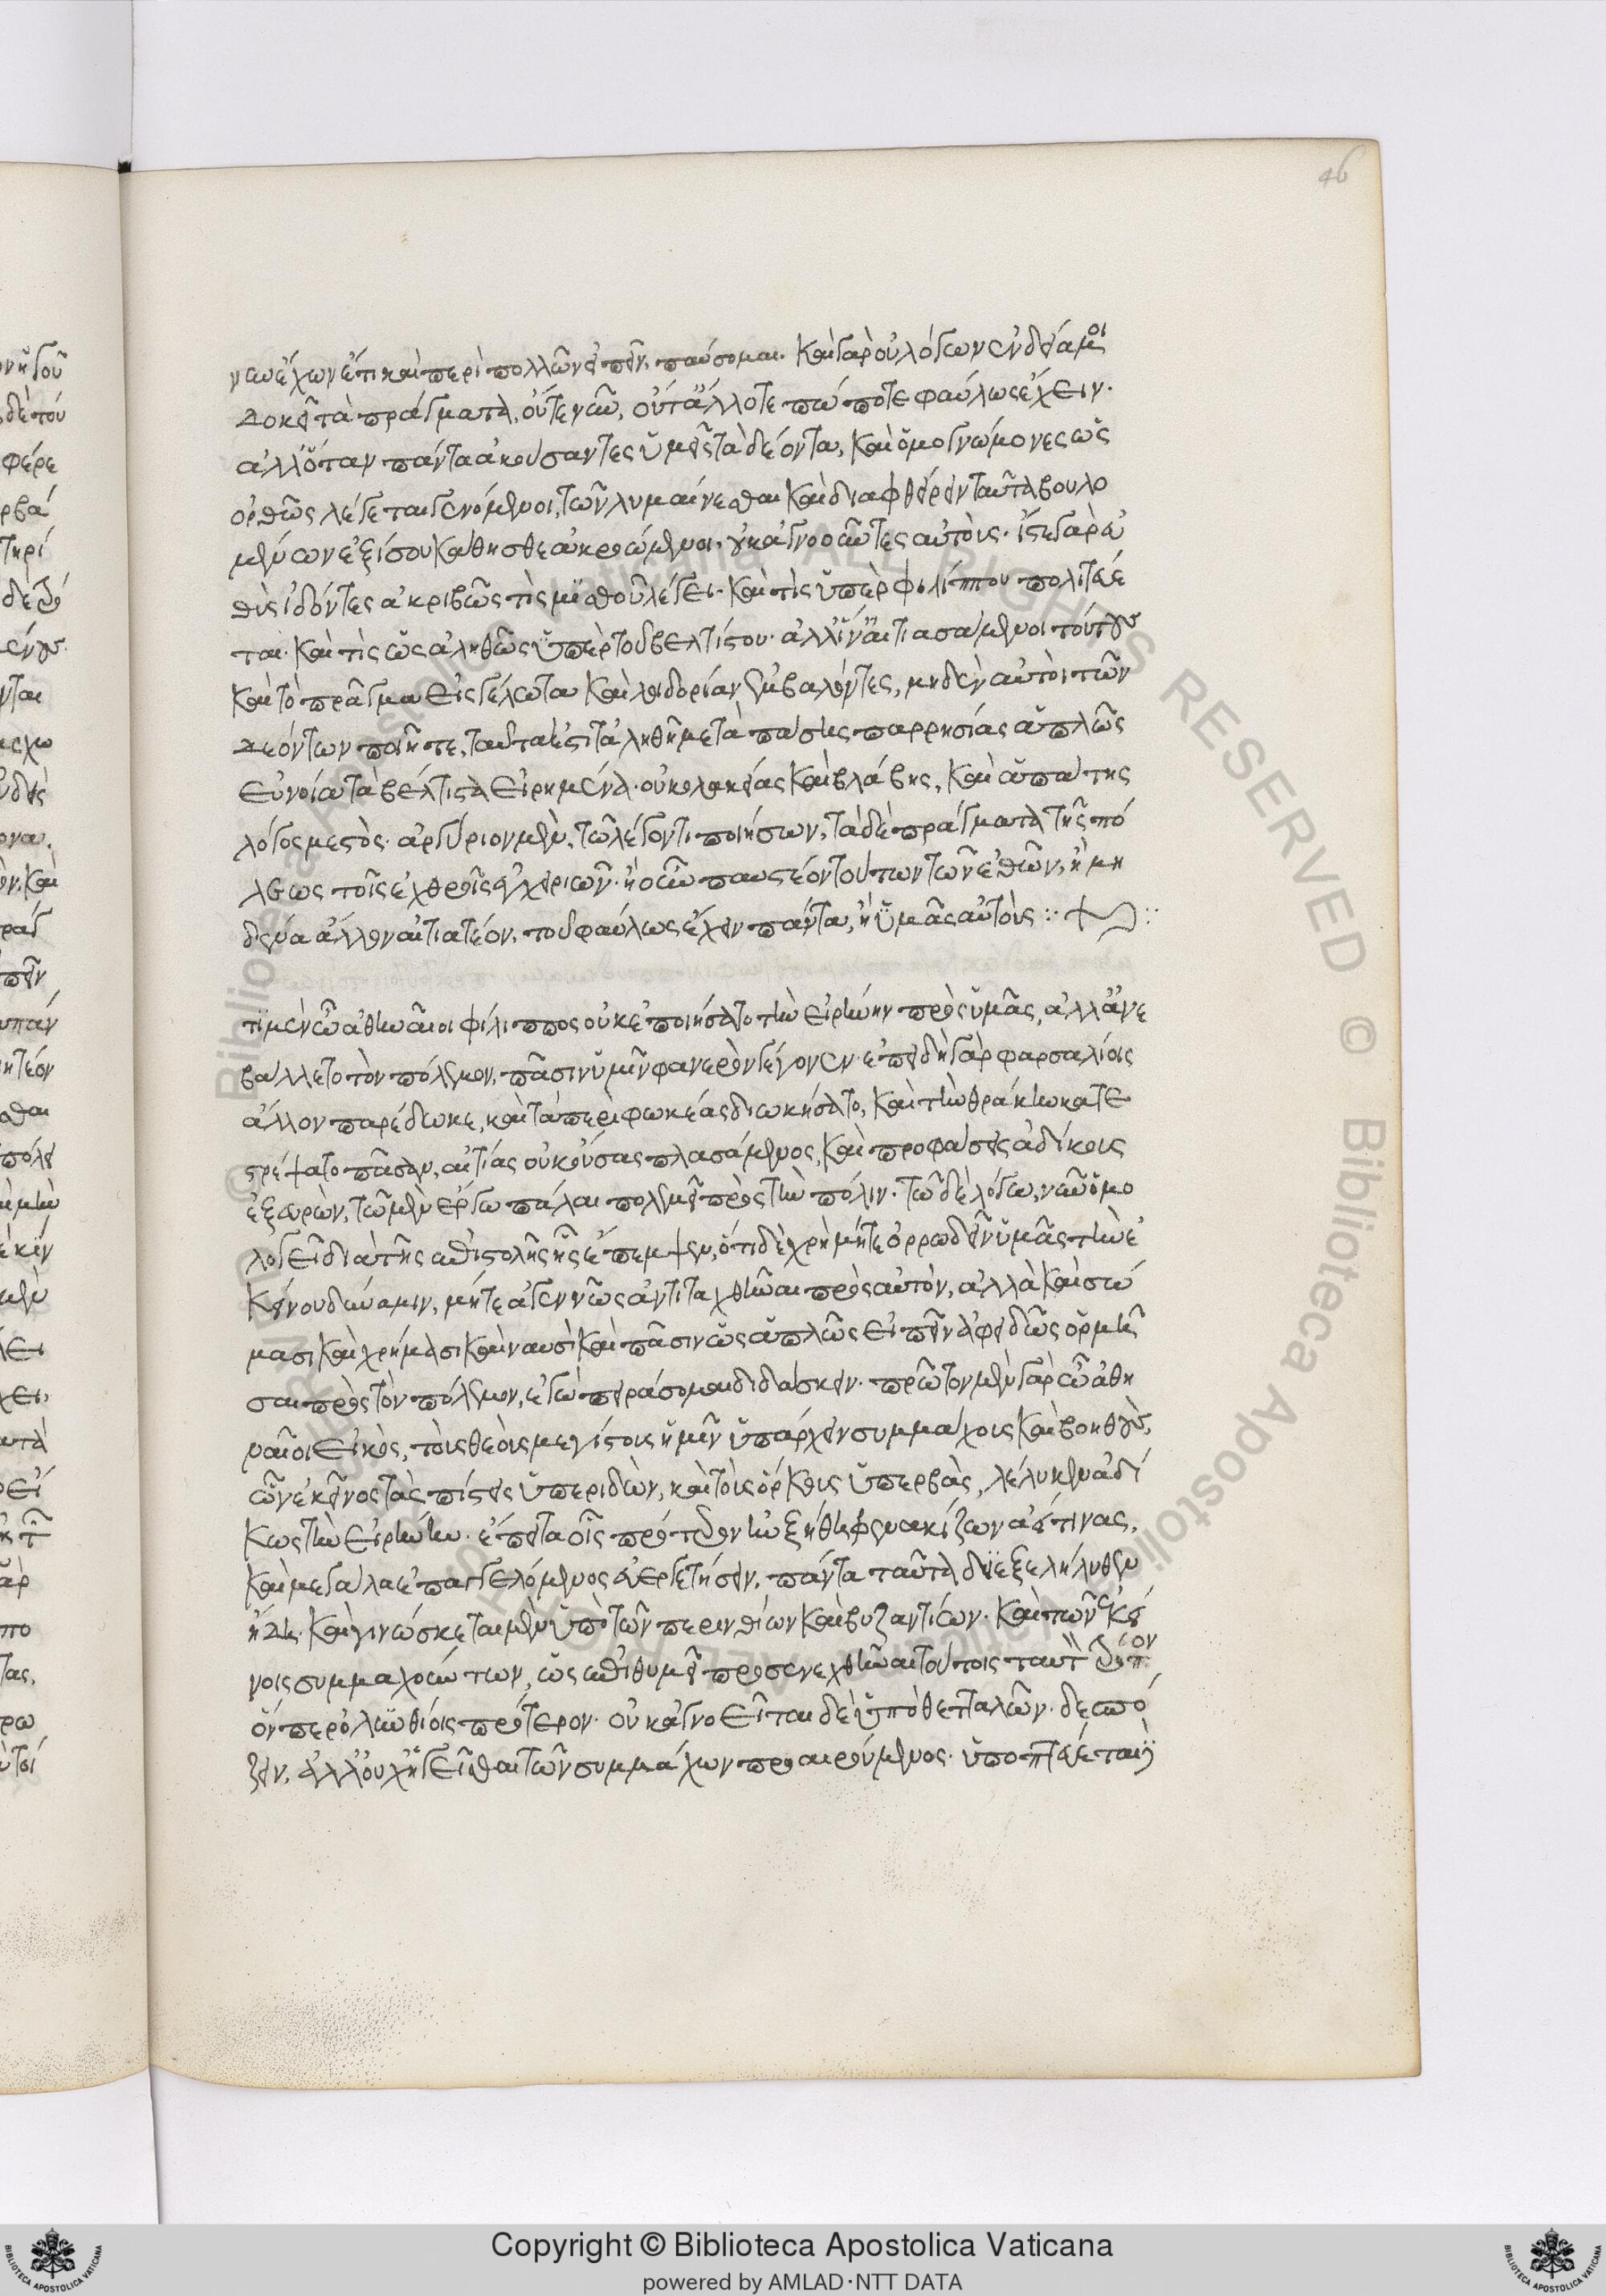 46
ναυ ἔχων ἔτι καὶ περὶ πολλῶν εἰπεῖν, παύσομαι. καὶ γὰρ οὐ λόγων ἐνδείᾳ μοι
δοκεῖ τὰ πράγματα, οὔτε νῦν, οὔτ' ἄλλοτε πώποτε φαύλως ἔχειν.
ἀλλ' ὅταν πάντα ἀκούσαντες ὑμεῖς τὰ δέοντα, καὶ ὁμογνώμονες ὡς
ὀρθῶς λέγεται γενόμενοι, τῶν λυμαίνεσθαι καὶ διαφθείρειν ταῦτα βουλο
μένων ἐξίσου κάθησθε ἀκροώμενοι, οὐκ ἀγνοοῦντες αὐτούς. ἴστε γὰρ εὐ
θὺς ἰδόντες ἀκριβῶς τίς μισθοῦ λέγει. καὶ τίς ὑπὲρ φιλίππου πολιτεύε
ται. καὶ τίς ὡς ἀληθῶς ὑπὲρ τοῦ βελτίστου. ἀλλ' ἵν' αἰτιασάμενοι τούτους
καὶ τὸ πρᾶγμα εἰς γέλωτα καὶ λοιδορίαν ἐμβαλόντες, μηδὲν αὐτοὶ τῶν
δεόντων ποιῆτε, ταῦτα ἐστὶ τἀληθῆ μετὰ πάσης παρρησίας ἁπλῶς
εὐνοίᾳ τὰ βέλτιστα εἰρημένα. οὐ κολακείας καὶ βλάβης, καὶ ἀπάτης
λόγος μεστὸς. ἀργύριον μὲν, τῷ λέγοντι ποιήσων, τὰ δὲ πράγματα τῆς πό
λεως τοῖς ἐχθροῖς ἐγχειριῶν. ἢ οὖν παυστέον τούτων τῶν ἐθῶν, ἢ μη
δένα ἄλλον αἰτιατέον, τοῦ φαύλως ἔχειν πάντα, ἢ ὑμᾶς αὐτούς :
τι μὲν ὦ ἀθηναῖοι φίλιππος οὐκ ἐποιήσατο τὴν εἰρήνην πρὸς ὑμᾶς, ἀλλ' ἀνε
βάλλετο τὸν πόλεμον, πᾶσιν ὑμῖν φανερὸν γέγονεν. ἐπειδὴ γὰρ φαρσαλίοις
ἄλλον παρέδωκε, καὶ τὰ περὶ φωκέας διωκήσατο, καὶ τὴν θράκην κατε
στρέψατο πᾶσαν, αἰτίας οὐκ οὔσας πλασάμενος, καὶ προφάσεις ἀδίκους
ἐξευρὼν, τῷ μὲν ἔργῳ πάλαι πολεμεῖ πρὸς τὴν πόλιν. τῷ δὲ λόγῳ, νῦν ὁμο
λογεῖ διὰ τῆς ἐπιστολῆς ἧς ἔπεμψεν, ὅτι δὲ χρὴ μήτε ὀρρωδεῖν ὑμᾶς τὴν ἐ
κείνου δύναμιν, μήτε ἀγεννῶς ἀντιταχθῆναι πρὸς αὐτόν, ἀλλὰ καὶ σώ
μασι καὶ χρήμασι καὶ ναυσὶ καὶ πᾶσιν ὡς ἁπλῶς εἰπεῖν ἀφειδῶς ὁρμῆ
σαι πρὸς τὸν πόλεμον, ἐγὼ πειράσομαι διδάσκειν. πρῶτον μὲν γὰρ ὦ ἀθη
ναῖοι εἰκὸς, τοὺς θεοὺς μεγίστους ὑμῖν ὑπάρχειν συμμάχους καὶ βοηθούς,
ὧν ἐκεῖνος τὰς πίστεις ὑπεριδὼν, καὶ τοὺς ὅρκους ὑπερβὰς, λέλυκεν ἀδί
κως τὴν εἰρήνην. ἔπειτα οἷς πρότερον ηὐξήθη φενακίζων ἀεί τινας,
καὶ μεγάλα ἐπαγγελόμενος εὐεργετήσειν, πάντα ταῦτα διεξελήλυθεν
ἤδη. καὶ γινώσκεται μὲν ὑπὸ τῶν περινθίων καὶ βυζαντίων. καὶ τῶν ἐκεί
νοις συμμαχούντων, ὡς ἐπιθυμεῖ προσενεχθῆναι τούτοις ταὐτ τρόπον
ὅνπερ ὀλυνθίοις πρότερον. οὐκ ἀγνοεῖται δὲ ὑπὸ θετταλῶν. δεσπό
ζειν, ἀλλ' οὐχ ἡγεῖσθαι τῶν συμμάχων προαιρούμενος. ὑποπτεύεται